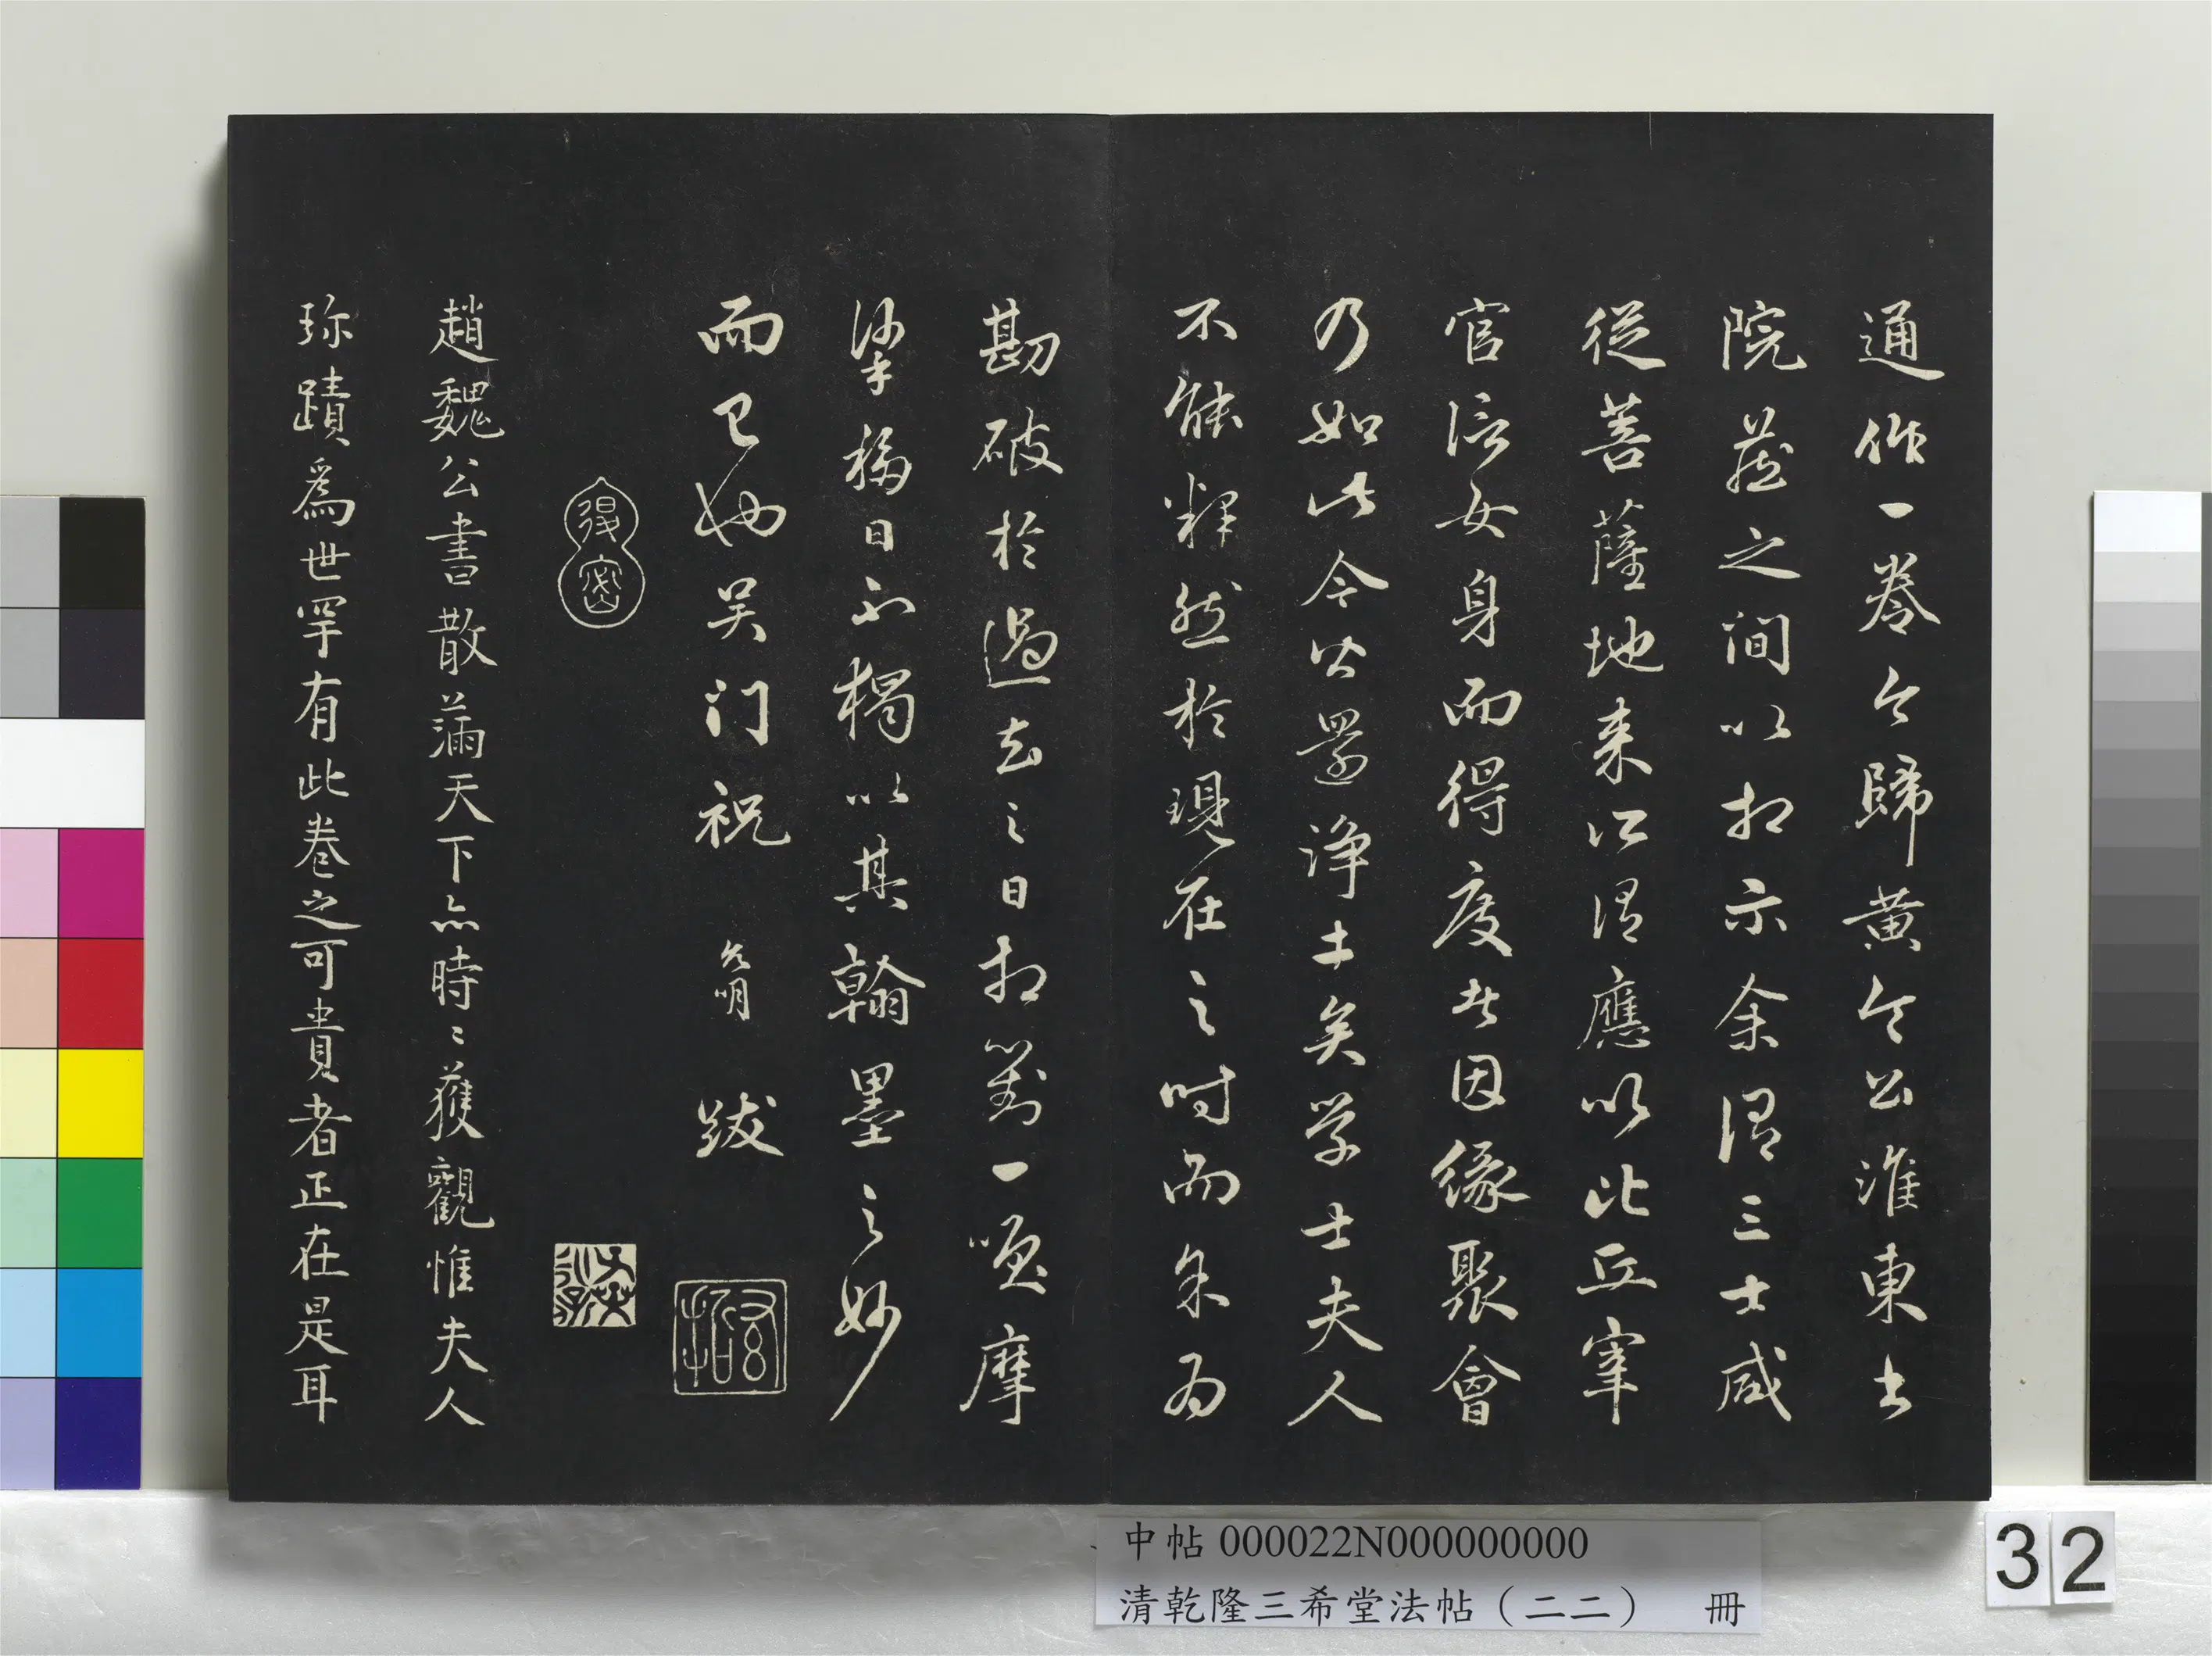 通作一卷今歸黃令公淮東書
院藏之間以相示余謂三士咸
從菩薩地來所謂應以比丘宰
官信女身而得度者因緣聚會
乃如此今皆還淨土矣學士夫人
不能釋然於現在之時而余為
勘破於過去之日相對一噱摩
挲移日不獨以其翰墨之妙
而已也吳門祝允明跋
得密
趙魏公書散滿天下亦時〻獲觀惟夫人
珎蹟爲世罕有此卷之可貴者正在是耳
中帖 000022N000000000
清乾隆三希堂法帖（二二） 冊
32